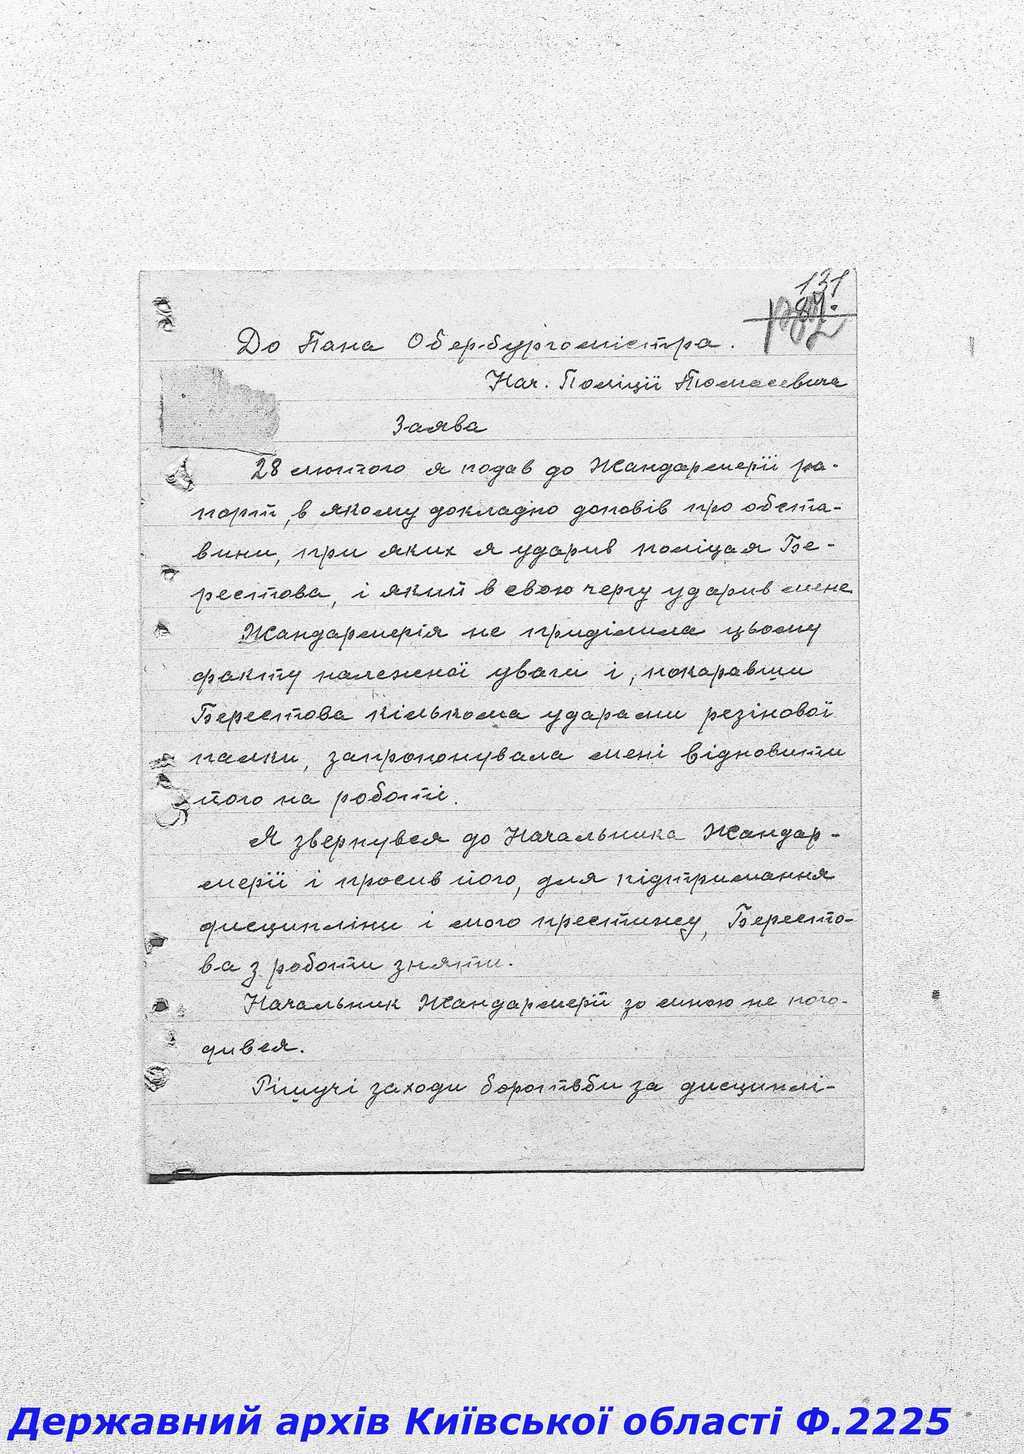 131
87.
До Пана Обер-бургомістра.
Нач. Поліції Томасевича
Заява
28 лютого я подав до Жандармерії ра-
порт, в якому докладно доповів про обста-
вини, при яких я ударив поліцая Бе-
рестова, і який в свою чергу ударив мене
Жандармерія не приділила цьому
факту належної уваги і, покаравши
Берестова кількома ударами резінової
палки, запропонувала мені відновити
його на роботі.
Я звернувся до Начальника Жандар-
мерії і просив його, для підтримання
дисципліни і мого престижу, Бересто-
ва з роботи зняти.
Начальник Жандармерії зо мною не пого-
дився.
Рішучі заходи боротьби за дисциплі-
Державний архів Київської області Ф.2225